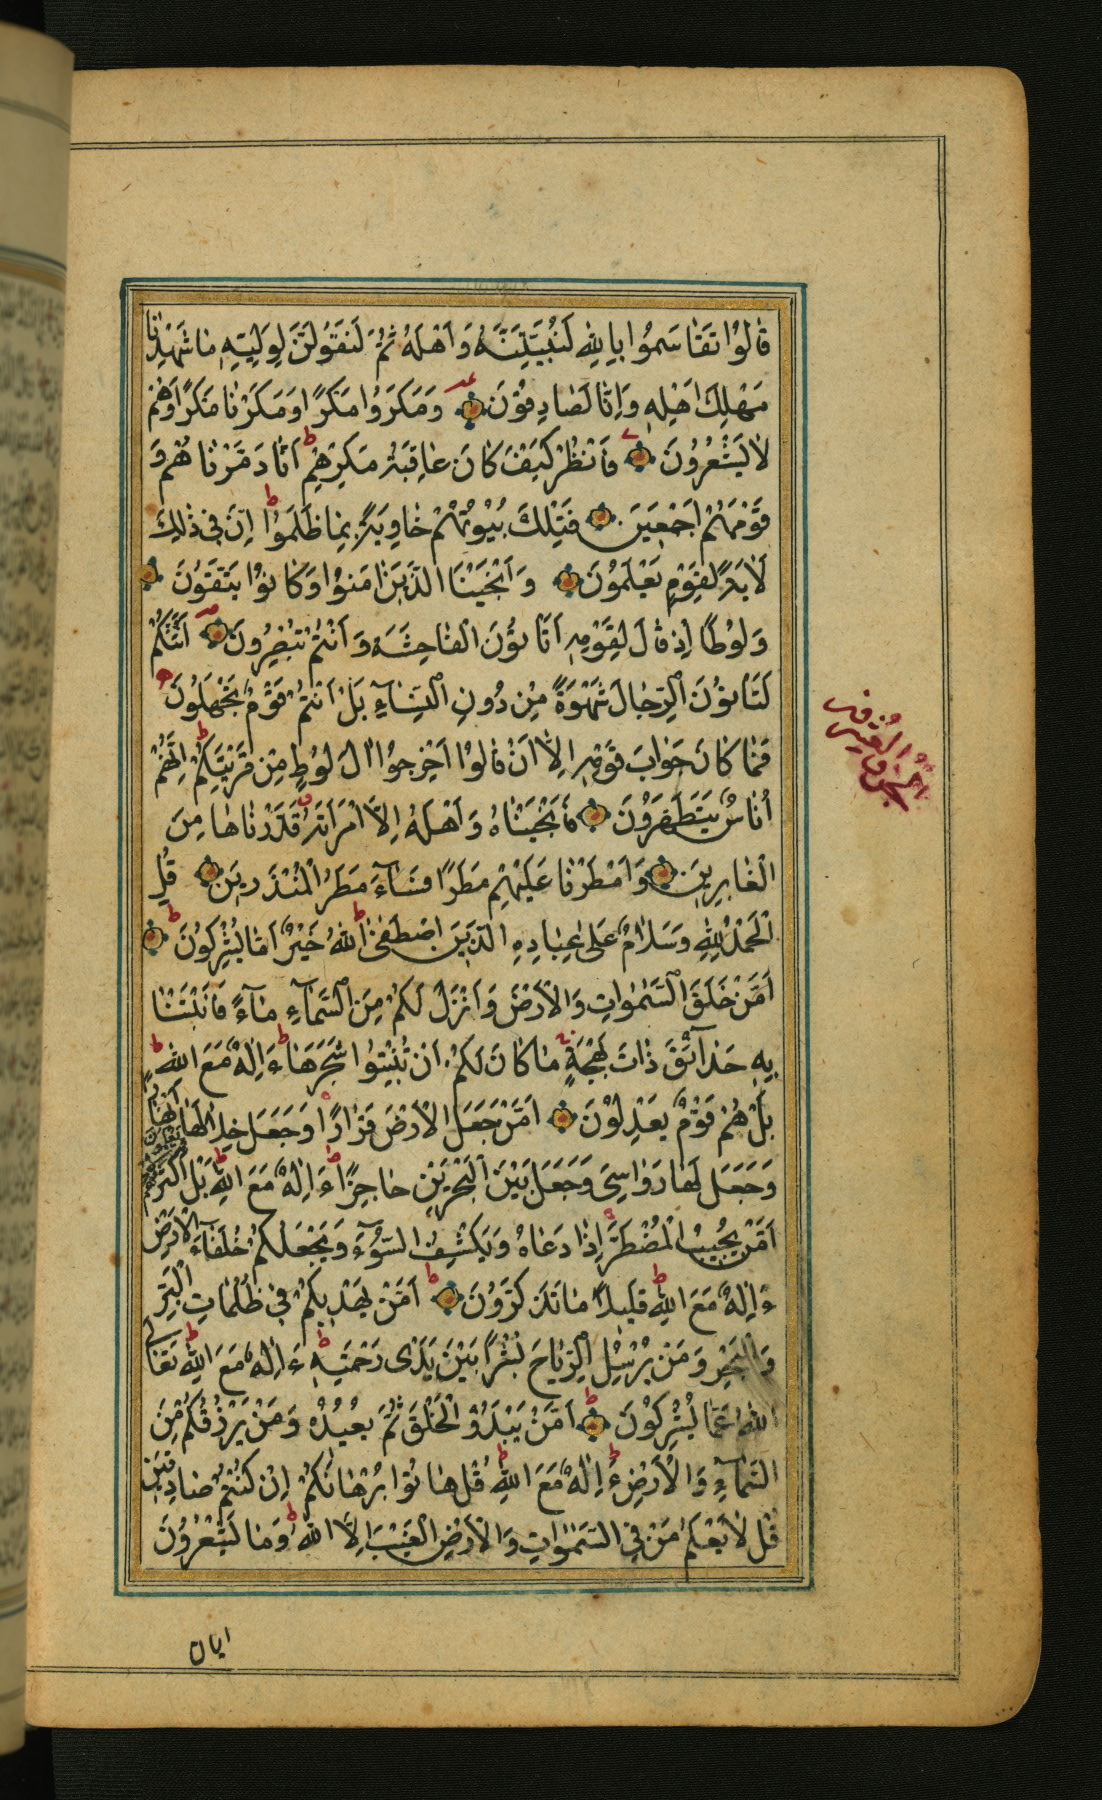 قَالُوا تَقَاسَمُوا بِاللهِ لَنُبَيِّتَنَّهُ وَاَهْلَهُ ثُمَّ لَنَقُولَنَّ لِوَلِيِّهِ مَا شَهِدْنَا
مَهْلِكَ اَهْلِهِ وَاِنَّا لَصَادِقُونَ وَمَكَرُوا مَكْرًا وَمَكَرْنَا مَكْرًا وَهُمْ
لَا يَشْعُرُونَ فَانْظُرْ كَيْفَ كَانَ عَاقِبَةُ مَكْرِهِمْ اَنَّا دَمَّرْنَاهُمْ وَ
قَوْمَهُمْ اَجْمَعِينَ فَتِلْكَ بُيُوتُهُمْ خَاوِيَةً بِمَا ظَلَمُوا اِنَّ فِي ذٰلِكَ
لَاٰيَةً لِقَوْمٍ يَعْلَمُونَ وَاَنْجَيْنَا الَّذِينَ اٰمَنُوا وَكَانُوا يَتَّقُونَ
وَلُوطًا اِذْ قَالَ لِقَوْمِهِ اَتَأْتُونَ الْفَاحِشَةَ وَاَنْتُمْ تُبْصِرُونَ اَئِنَّكُمْ
لَتَأْتُونَ الرِّجَالَ شَهْوَةً مِنْ دُونِ النِّسَاءِ بَلْ اَنْتُمْ قَوْمٌ تَجْهَلُونَ
فَمَا كَانَ جَوَابَ قَوْمِهِ اِلَّا اَنْ قَالُوا اَخْرِجُوا اٰلَ لُوطٍ مِنْ قَرْيَتِكُمْ اِنَّهُمْ
اُنَاسٌ يَتَطَهَّرُونَ فَاَنْجَيْنَاهُ وَاَهْلَهُ اِلَّا امْرَاَتَهُ قَدَّرْنَاهَا مِنَ
الْغَابِرِينَ وَاَمْطَرْنَا عَلَيْهِمْ مَطَرًا فَسَاءَ مَطَرُ الْمُنْذَرِينَ قُلِ
الْحَمْدُ لِلّٰهِ وَسَلَامٌ عَلٰى عِبَادِهِ الَّذِينَ اصْطَفٰى اٰللهُ خَيْرٌ اَمَّا يُشْرِكُونَ
اَمَّنْ خَلَقَ السَّمٰوَاتِ وَالْاَرْضَ وَاَنْزَلَ لَكُمْ مِنَ السَّمَاءِ مَاءً فَاَنْبَتْنَا
بِهِ حَدَائِقَ ذَاتَ بَهْجَةٍ مَا كَانَ لَكُمْ اَنْ تُنْبِتُوا شَجَرَهَا ءَاِلٰهٌ مَعَ اللهِ
بَلْ هُمْ قَوْمٌ يَعْدِلُونَ اَمَّنْ جَعَلَ الْاَرْضَ قَرَارًا وَجَعَلَ خِلَالَهَا اَنْهَارًا
وَجَعَلَ لَهَا رَوَاسِيَ وَجَعَلَ بَيْنَ الْبَحْرَيْنِ حَاجِزًا ءَاِلٰهٌ مَعَ اللهِ بَلْ اَكْثَرُهُمْ لَا يَعْلَمُونَ
اَمَّنْ يُجِيبُ الْمُضْطَرَّ اِذَا دَعَاهُ وَيَكْشِفُ السُّوءَ وَيَجْعَلُكُمْ خُلَفَاءَ الْاَرْضِ
ءَاِلٰهٌ مَعَ اللهِ قَلِيلًا مَا تَذَكَّرُونَ اَمَّنْ يَهْدِيكُمْ فِي ظُلُمَاتِ الْبَرِّ
وَالْبَحْرِ وَمَنْ يُرْسِلُ الرِّيَاحَ بُشْرًا بَيْنَ يَدَيْ رَحْمَتِهِ ءَاِلٰهٌ مَعَ اللهِ تَعَالَى
اللهُ عَمَّا يُشْرِكُونَ اَمَّنْ يَبْدَؤُ الْخَلْقَ ثُمَّ يُعِيدُهُ وَمَنْ يَرْزُقُكُمْ مِنَ
السَّمَاءِ وَالْاَرْضِ ءَاِلٰهٌ مَعَ اللهِ قُلْ هَاتُوا بُرْهَانَكُمْ اِنْ كُنْتُمْ صَادِقِينَ
قُلْ لَا يَعْلَمُ مَنْ فِي السَّمٰوَاتِ وَالْاَرْضِ الْغَيْبَ اِلَّا اللهُ وَمَا يَشْعُرُونَ
ايان
الجزؤ العشرون